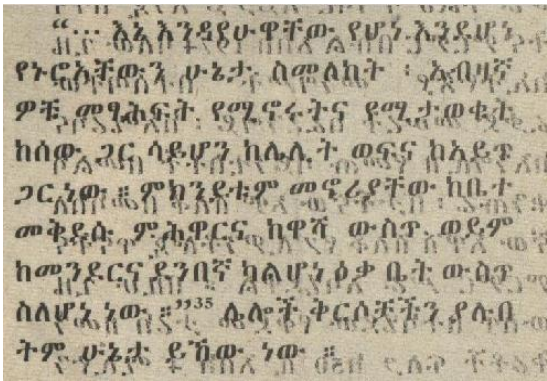 “... እኔ እንዳየሁዋቸው የሆነ እንደሆነ
የኑሮአቸውን ሁኔታ ስመለከት ፡ አብዛኛ
ዎቹ መፃሕፍት የሚኖሩትና የሚታወቁት
ከሰው ጋር ሳይሆን ከሌሊት ወፍና ከአይጥ
ጋር ነው ። ምክንያቱም መኖሪያቸው ከቤተ
መቅደሱ ምሕዋርና ከዋሻ ውስጥ ወይም
ከመንደርና ደንበኛ ካልሆነ ዕቃ ቤት ውስጥ
ስለሆነ ነው ።”³⁵ ሌሎች ቅርሶቻችን ያሉበ
ትም ሁኔታ ይኸው ነው ።